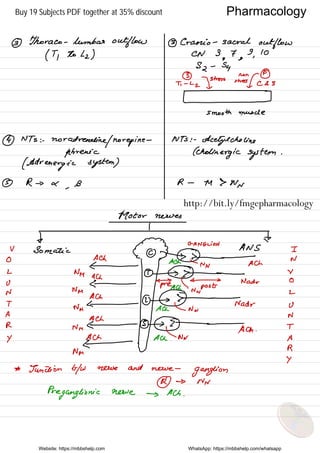 Buy 19 Subjects PDF together at 35% discount
Pharmacology
③ Thoraco - Lumbar outflow
(T1 to L2)
③ Cranio - sacral outflow
CN 3, 7, 9, 10
S2 - S4
Ⓢ Ⓟ
T1-L2 short non C & S
smooth muscle
④ NTs:- noradrenaline/norepine-
phrenic
(Adrenergic system)
NTs:- Acetylcholine
(cholinergic system.
⑤ R → α, β
R - M > NN
http://bit.ly/fmgepharmacology
Motor nerves
VOLUNTARY
Somatic
GANGLION
ANS
INVOLUNTARY
ACh
NM
C
ACh
NN
ACh
ACh
NM
T
pre
ACh
NN
post
Nadr
ACh
NM
L
ACh
NN
Nadr
ACh
NM
S
ACh
NN
ACh.
ACh
NM
* Junction b/w nerve and nerve - ganglion
Ⓡ → NN
Preganglionic nerve → ACh.
Website: https://mbbshelp.com
WhatsApp: https://mbbshelp.com/whatsapp